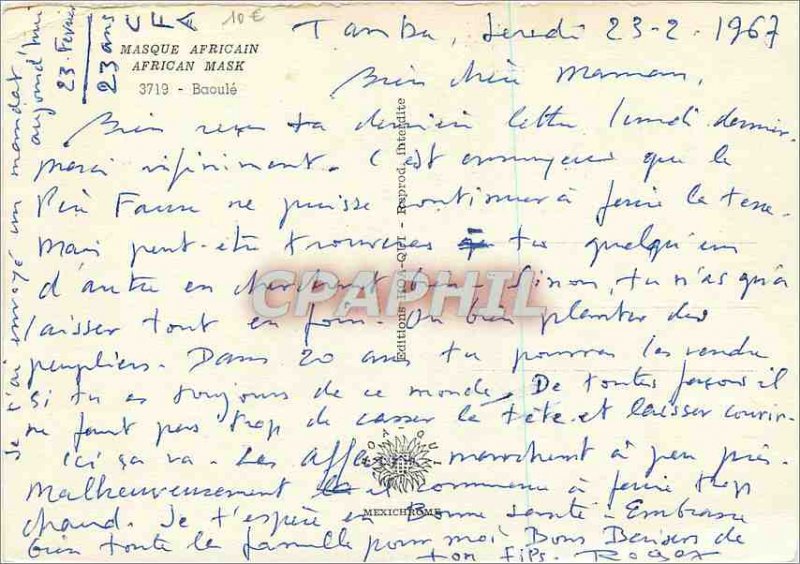 10 €
MASQUE AFRICAIN
AFRICAN MASK
3719 - Baoulé
Tamba, Jeudi 23-2-1967
Bien chère Maman,
Bien reçu ta dernière lettre lundi dernier.
Merci infiniment. C'est ennuyeux que le
Père Faure ne puisse continuer à faire la terre.
Mais peut-être trouveras tu quelqu'un
d'autre en cherchant bien. Sinon, tu n'as qu'à
laisser tout en foin. Ou bien planter des
peupliers. Dans 20 ans tu pourras les vendre
si tu es toujours de ce monde. De toutes façons il
ne faut pas trop se casser la tête et laisser courir.
Ici ça va. Les affaires marchent à peu près.
Malheureusement il commence à faire trop
chaud. Je t'espère en Bonne Santé. Embrasse
bien toute la famille pour moi Bons Baisers de
ton fils. Roger
Je t'ai envoyé un mandat
aujourd'hui
23 Février
23 ans
CFA
Editions HOA-QUI - Reprod. interdite
HOA-QUI
MEXICHROME
CPAPHIL